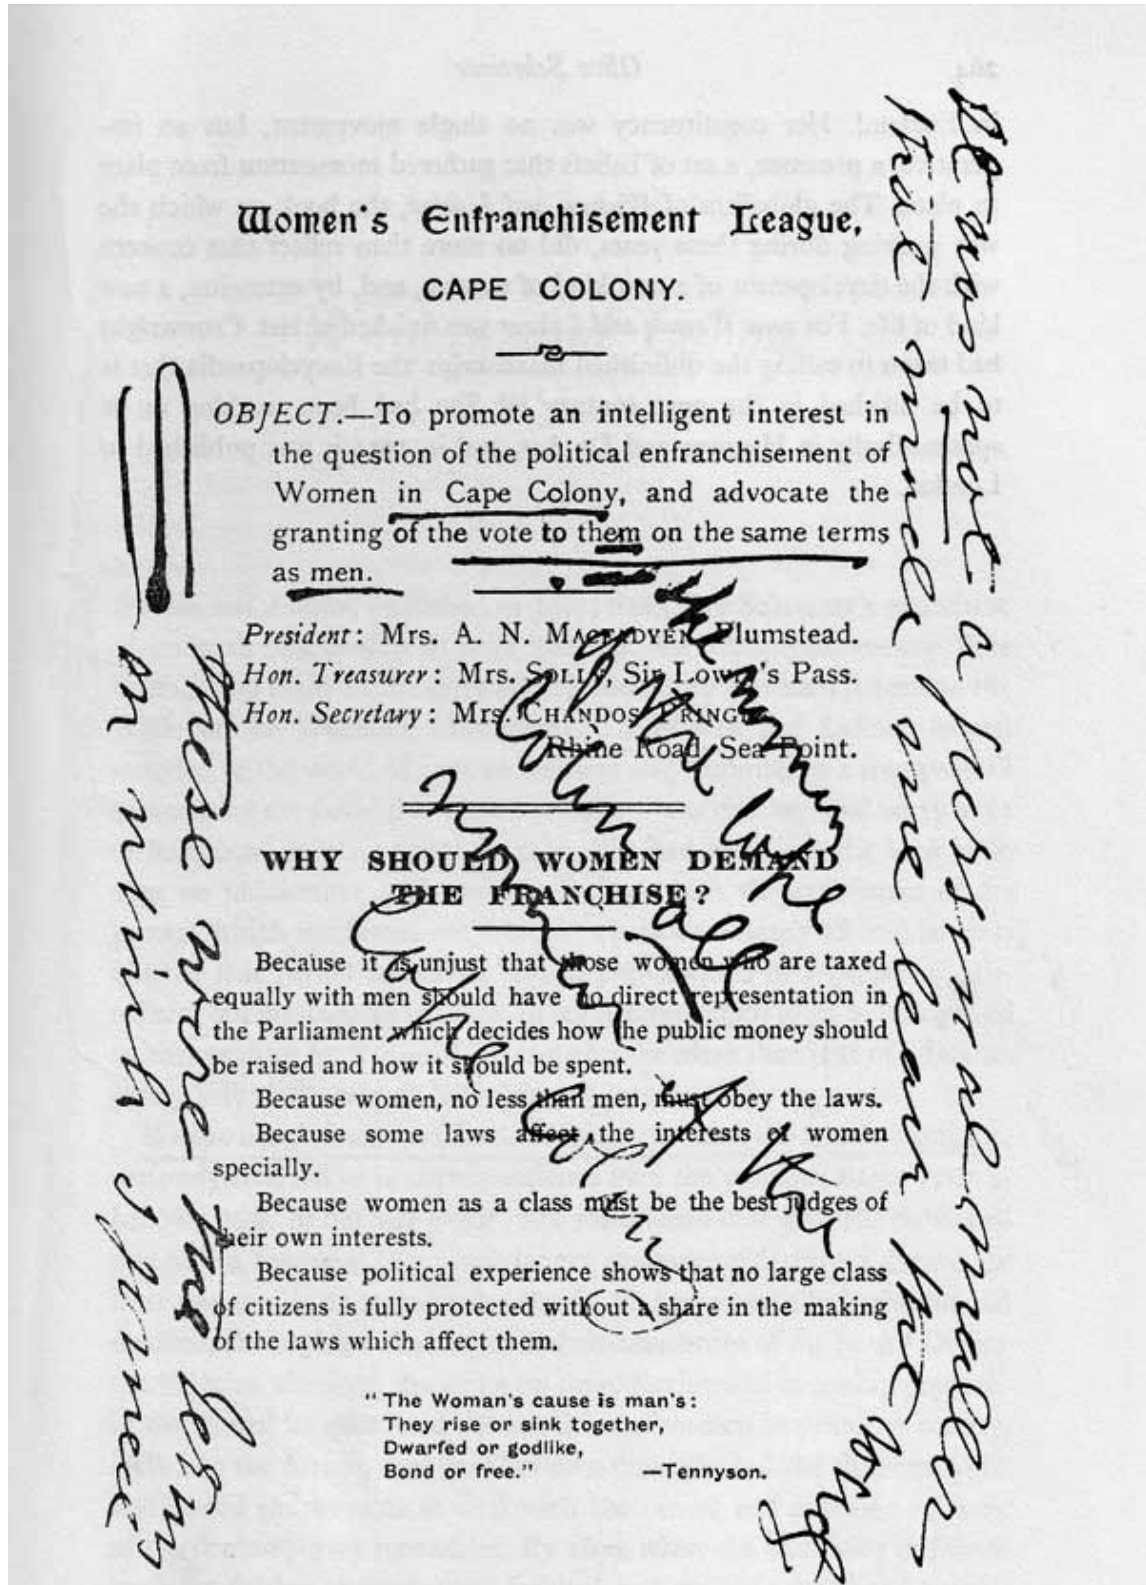 Women's Enfranchisement League,
CAPE COLONY.
OBJECT.—To promote an intelligent interest in
the question of the political enfranchisement of
Women in Cape Colony, and advocate the
granting of the vote to them on the same terms
as men.
President: Mrs. A. N. MACFADYEN, Plumstead.
Hon. Treasurer: Mrs. SOLLY, Sir Lowry's Pass.
Hon. Secretary: Mrs. CHANDOS PRINGLE,
Rhine Road, Sea Point.
WHY SHOULD WOMEN DEMAND
THE FRANCHISE?
Because it is unjust that those women who are taxed
equally with men should have no direct representation in
the Parliament which decides how the public money should
be raised and how it should be spent.
Because women, no less than men, must obey the laws.
Because some laws affect the interests of women
specially.
Because women as a class must be the best judges of
their own interests.
Because political experience shows that no large class
of citizens is fully protected without a share in the making
of the laws which affect them.
"The Woman's cause is man's:
They rise or sink together,
Dwarfed or godlike,
Bond or free." —Tennyson.
It was not a personal matter
that made me leave the
The women
of the Cape
Colony all
women of the
Cape Colony
These were the terms
on which I joined
264
Olive Schreiner